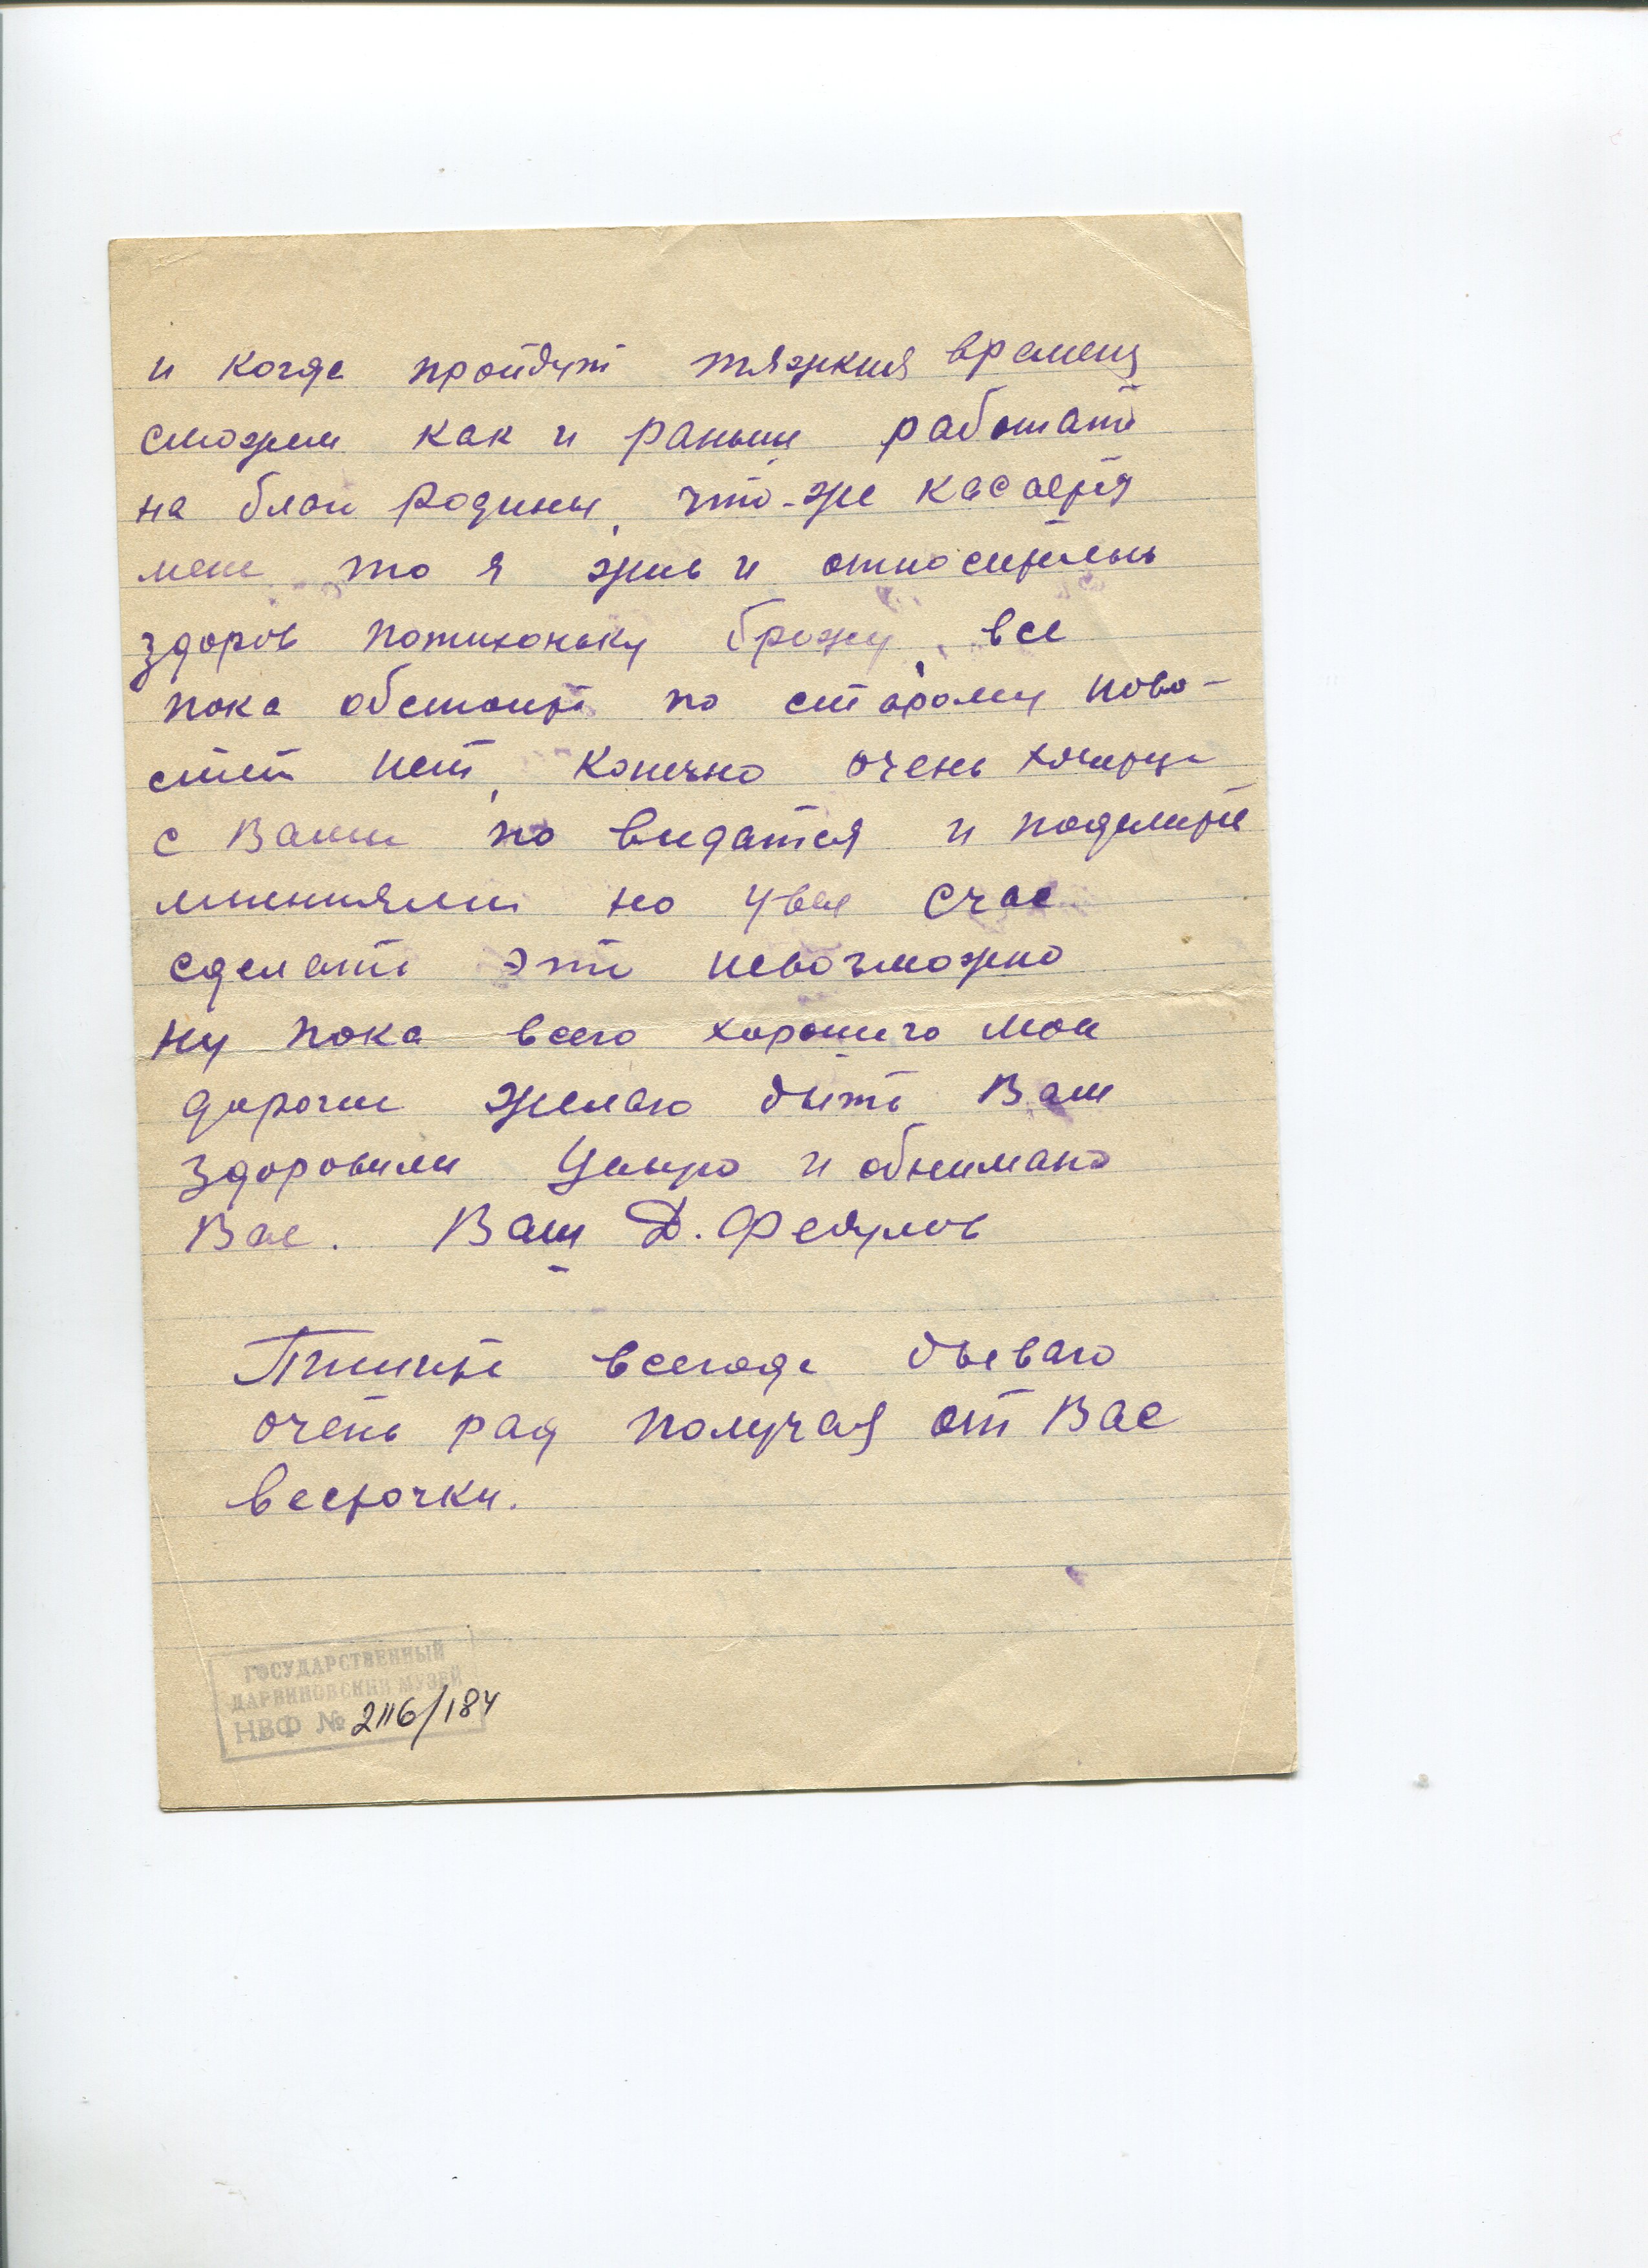 и когда пройдут тяжкия времена
сможем как и раньше работать
на благо Родины, что-же касается
меня то я жив и относительно
здоров потихоньку брожу, все
пока обстоит по старому ново-
стей нет, конечно очень хочется
с Вами по видатся и поделится
мнениями но увы счас
сделать это невозможно
Ну пока всего хорошего мои
дорогие желаю быть Вам
здоровыми Целую и обнимаю
Вас. Ваш Д. Федулов
Пишите всегда бываю
очень рад получая от Вас
весточки.
ГОСУДАРСТВЕННЫЙ
ДАРВИНОВСКИЙ МУЗЕЙ
НВФ № 2116/184